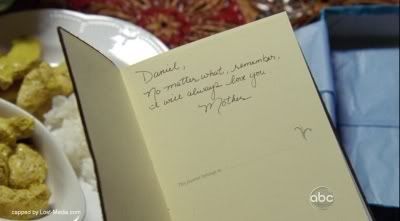 Daniel,
No matter what, remember,
I will always love you
Mother
This journal belongs to
abc
capped by Lost-Media.com